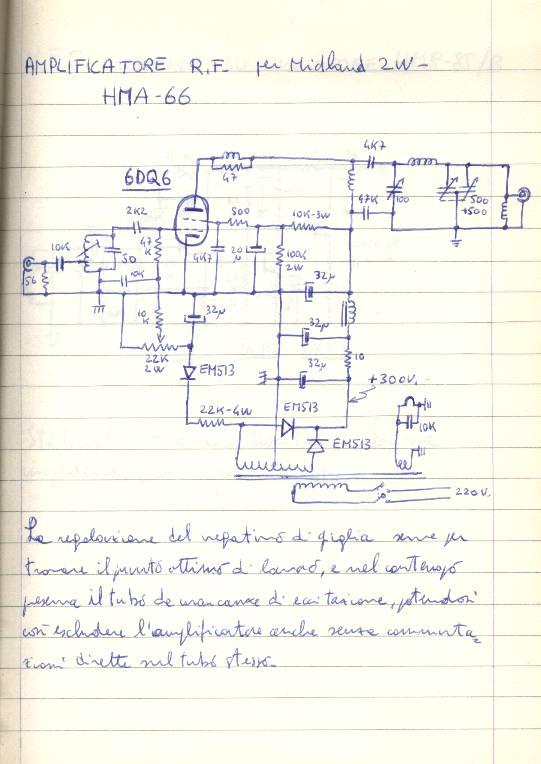 AMPLIFICATORE R.F. per Midland 2W-
HMA-66
6DQ6
47
4K7
2K2
500
10K-3W
47K
100
500
+500
10K
50
47
K
4K7
20
μ
100K
2W
32μ
56
10K
10
K
32μ
32μ
22K
2W
10
EM513
32μ
+300V.
22K-4W
EM513
10K
EM513
220V.
La regolazione del negativo di griglia serve per
trovare il punto ottimo di lavoro, e nel contempo
preserva il tubo da mancanza di eccitazione, potendosi
così escludere l'amplificatore anche senza commuta=
zioni dirette sul tubo stesso-